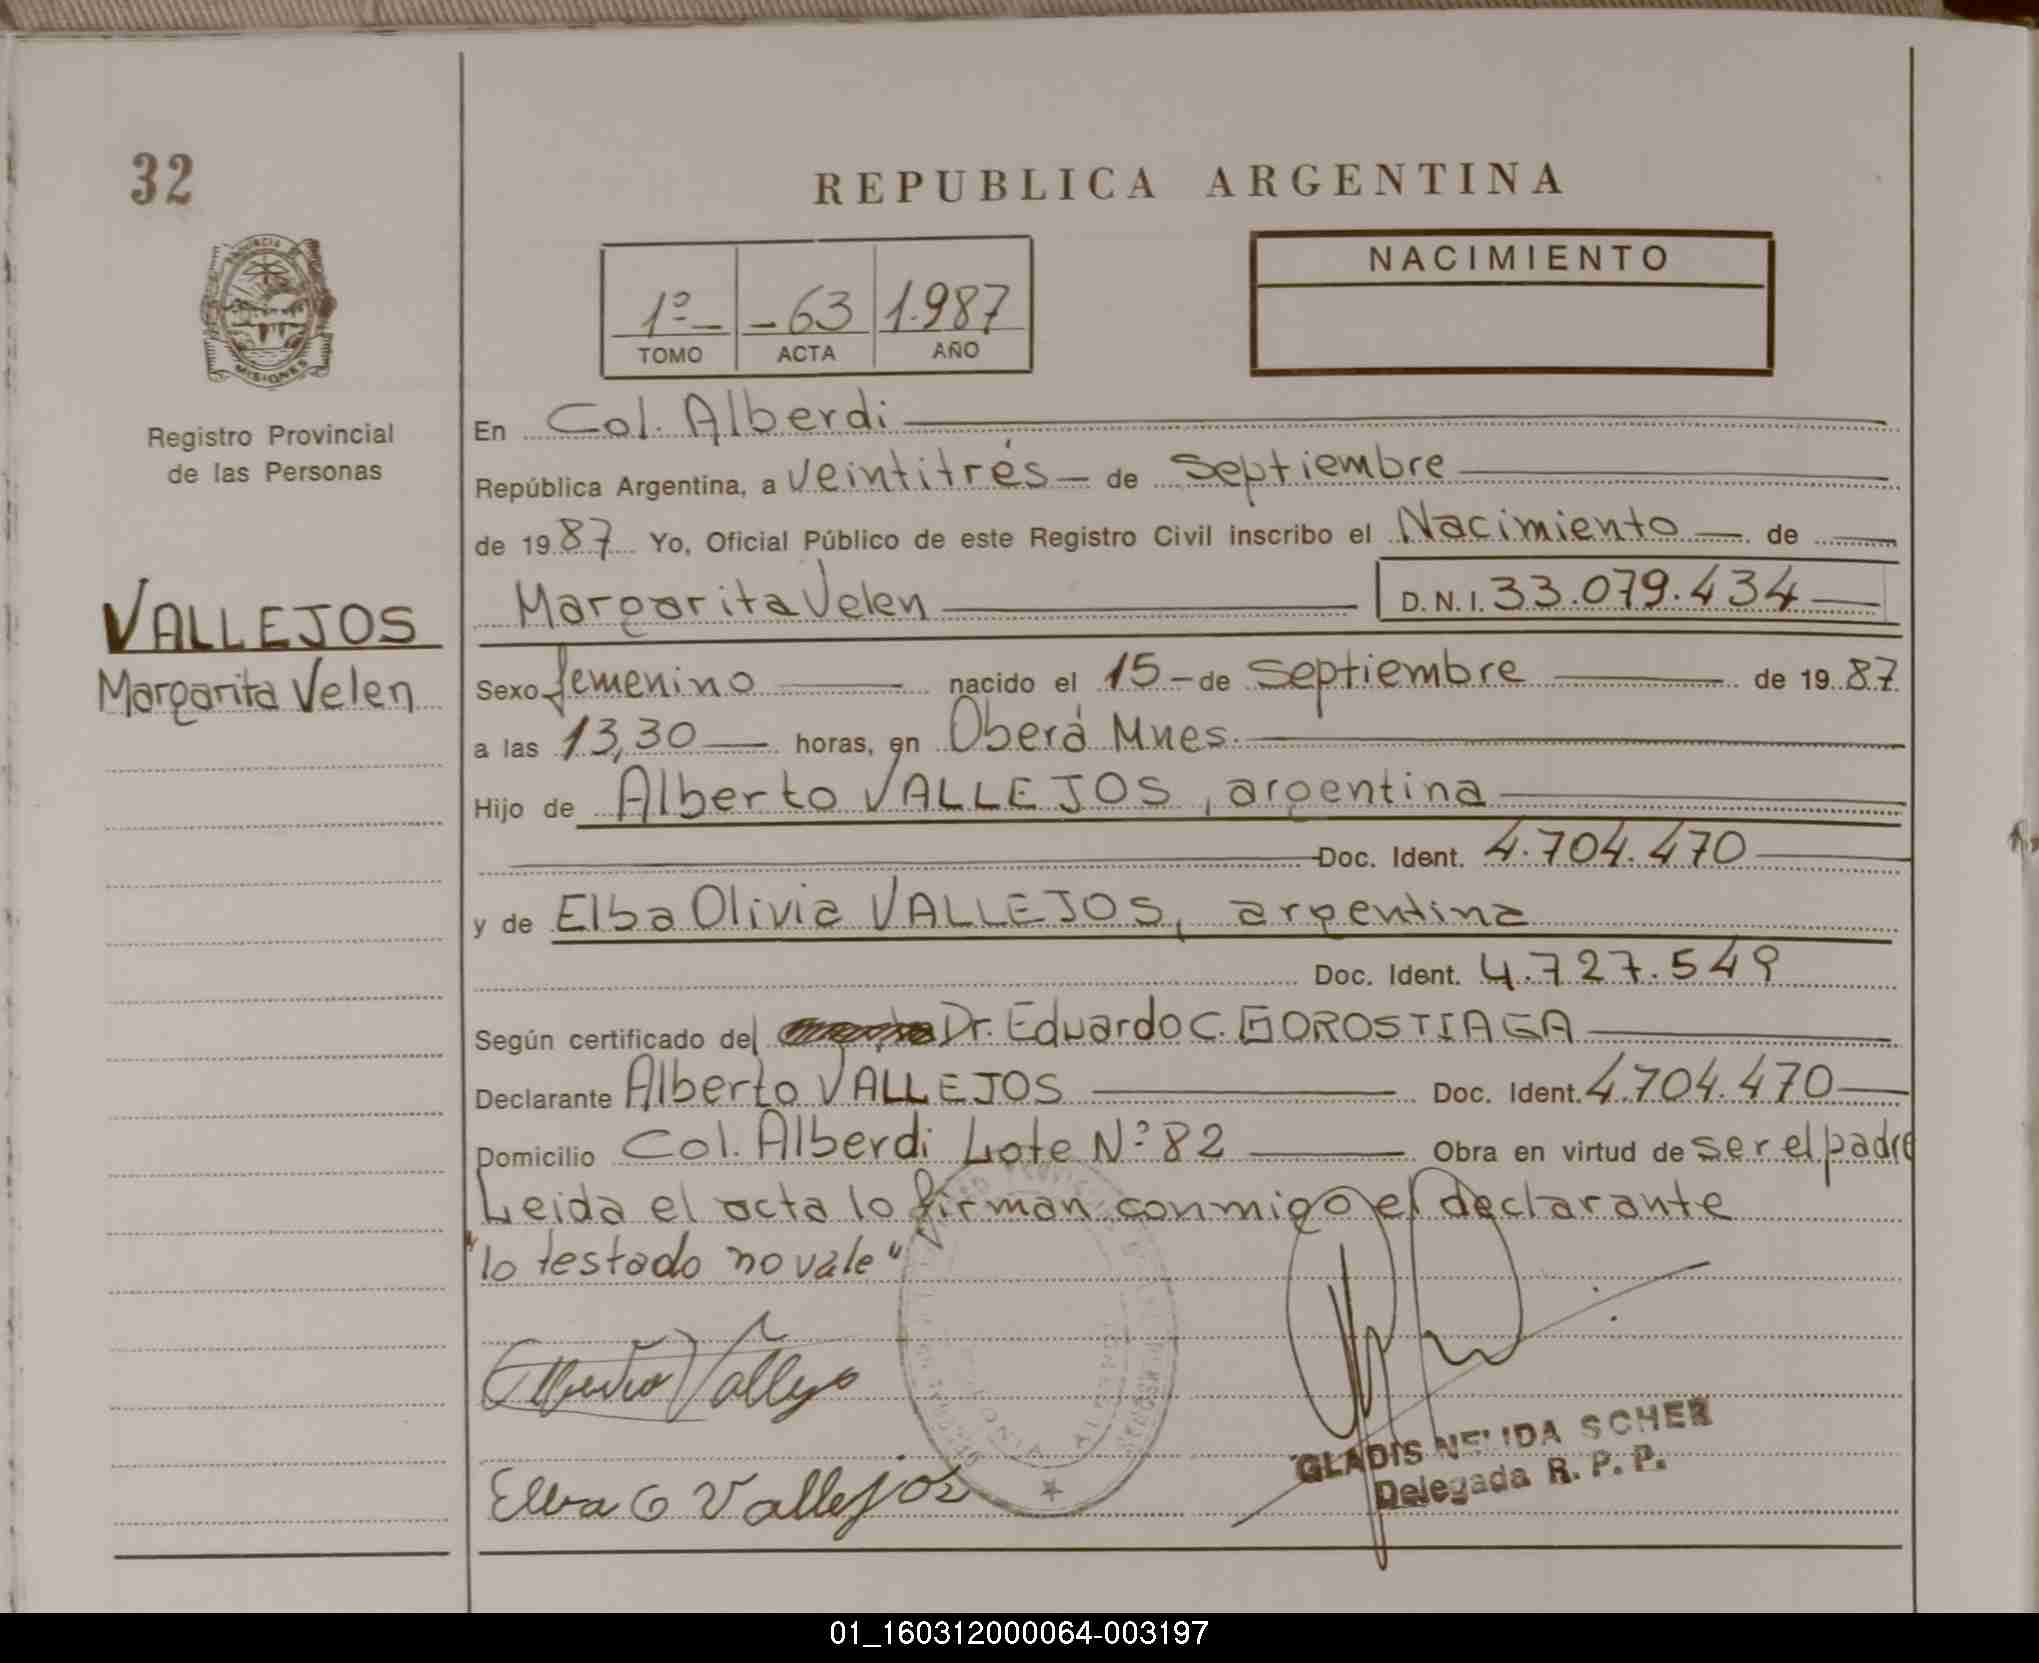 32
REPUBLICA ARGENTINA
PROVINCIA DE
MISIONES
Registro Provincial
de las Personas
1º - 63 1.987
TOMO ACTA AÑO
NACIMIENTO
En Col. Alberdi
República Argentina, a veintitrés de septiembre
de 1987 Yo, Oficial Público de este Registro Civil inscribo el Nacimiento de
Margarita Velen D.N.I. 33.079.434
VALLEJOS
Margarita Velen
Sexo femenino nacido el 15 - de septiembre de 1987
a las 13,30 horas, en Oberá Mnes.
Hijo de Alberto VALLEJOS, argentina
Doc. Ident. 4.704.470
y de Elba Olivia VALLEJOS, argentina
Doc. Ident. 4.727.549
Según certificado del Dr. Eduardo C. GOROSTIAGA
Declarante Alberto VALLEJOS Doc. Ident. 4.704.470
Domicilio Col. Alberdi Lote Nº 82 Obra en virtud de ser el padre
Leida el acta lo firman conmigo el declarante
"lo testado no vale"
Alberto Vallejo
Elba O Vallejos
GLADIS NELIDA SCHER
Delegada R. P. P.
01_160312000064-003197